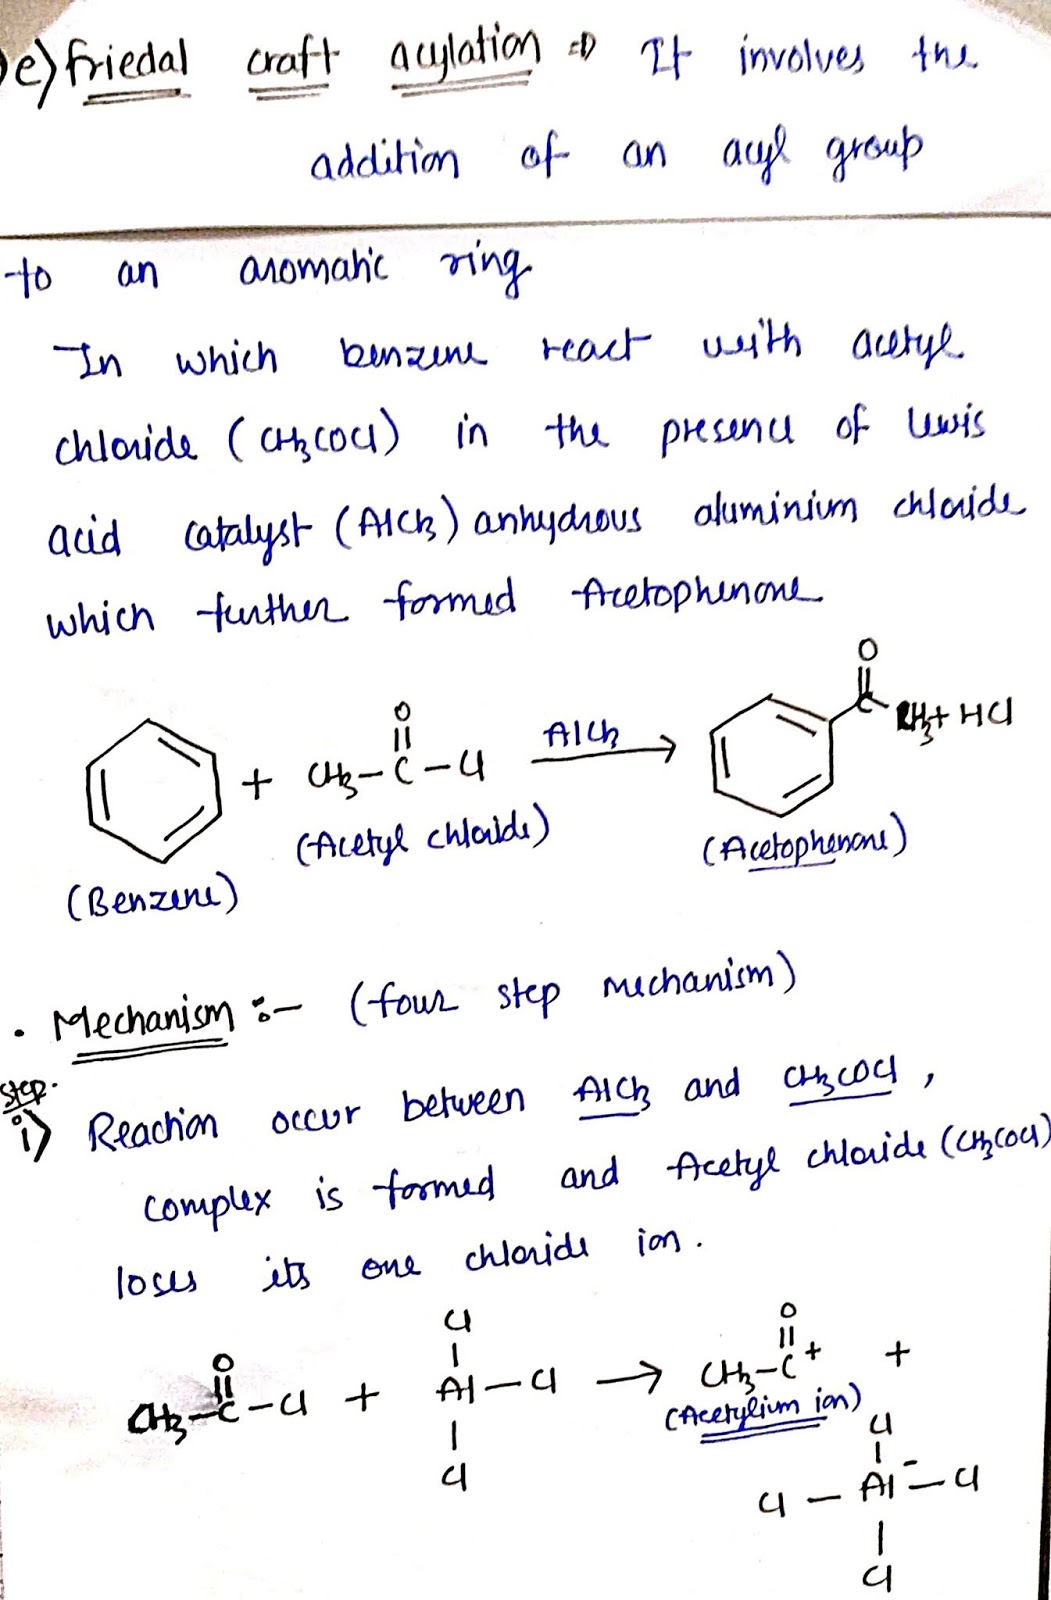 e) friedal craft acylation ⇒ It involves the
addition of an acyl group
to an aromatic ring
In which benzene react with acetyl
chloride (CH3COCl) in the presence of lewis
acid catalyst (AlCl3) anhydrous aluminium chloride
which further formed Acetophenone
O
|| 
C CH3 + HCl
O
||
+ CH3–C–Cl AlCl3 →
(Benzene) (Acetyl chloride) (Acetophenone)
• Mechanism :– (four step mechanism)
Step.
i) Reaction occur between AlCl3 and CH3COCl,
complex is formed and Acetyl chloride (CH3COCl)
loses its one chloride ion.
O Cl O
|| | ||
CH3–C–Cl + Al–Cl → CH3–C+ +
| (Acetylium ion)
Cl
Cl
|
Cl – Al⁻ – Cl
|
Cl